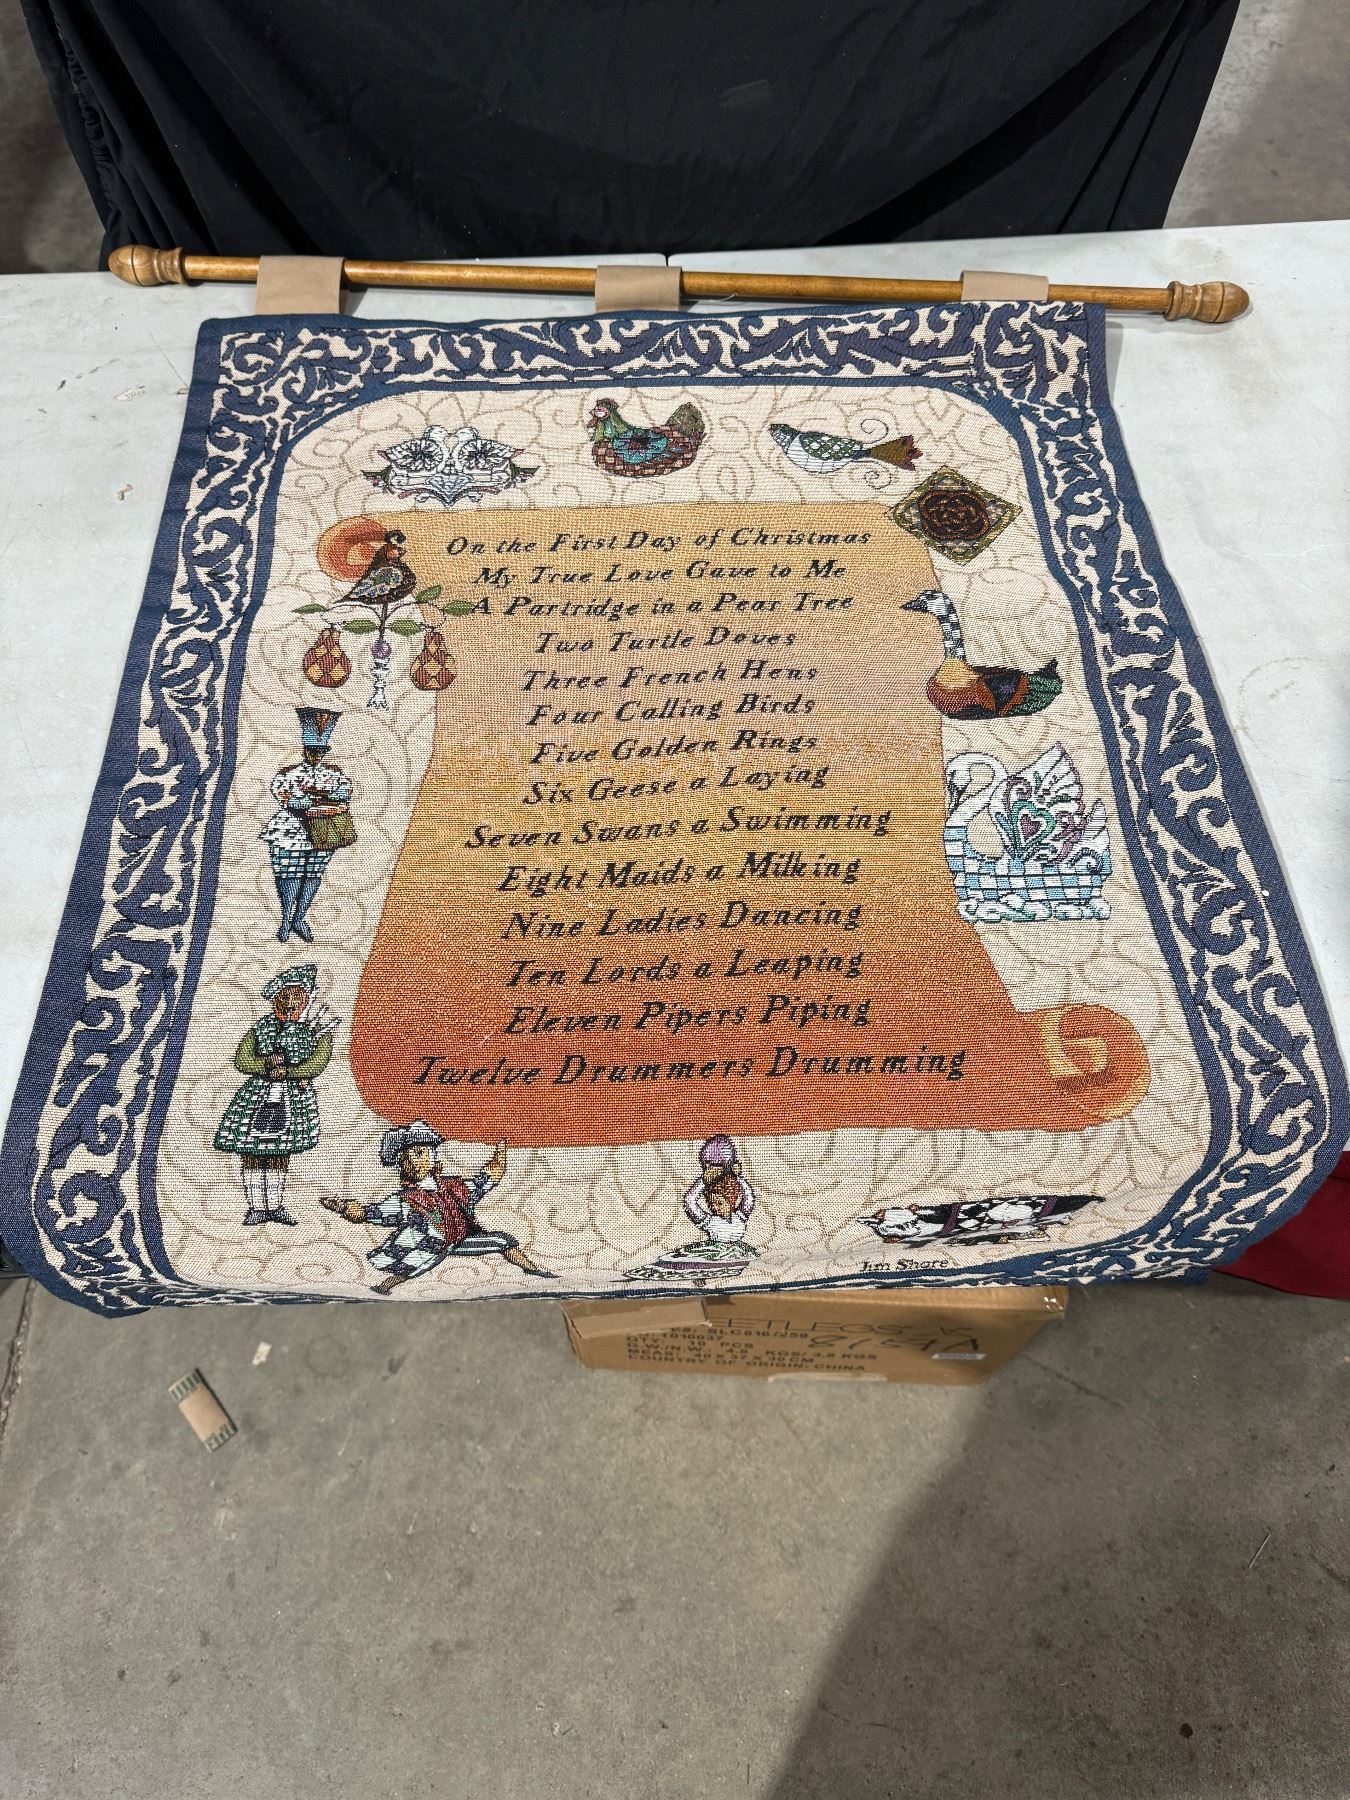 On the First Day of Christmas
My True Love Gave to Me
A Partridge in a Pear Tree
Two Turtle Doves
Three French Hens
Four Calling Birds
Five Golden Rings
Six Geese a Laying
Seven Swans a Swimming
Eight Maids a Milking
Nine Ladies Dancing
Ten Lords a Leaping
Eleven Pipers Piping
Twelve Drummers Drumming
Jim Shore
SLC816/259
QTY: 10 PCS
G.W./N.W.: 4.8 KGS/ 3.8 KGS
MEAS: 40 X 37 X 36 CM
COUNTRY OF ORIGIN: CHINA